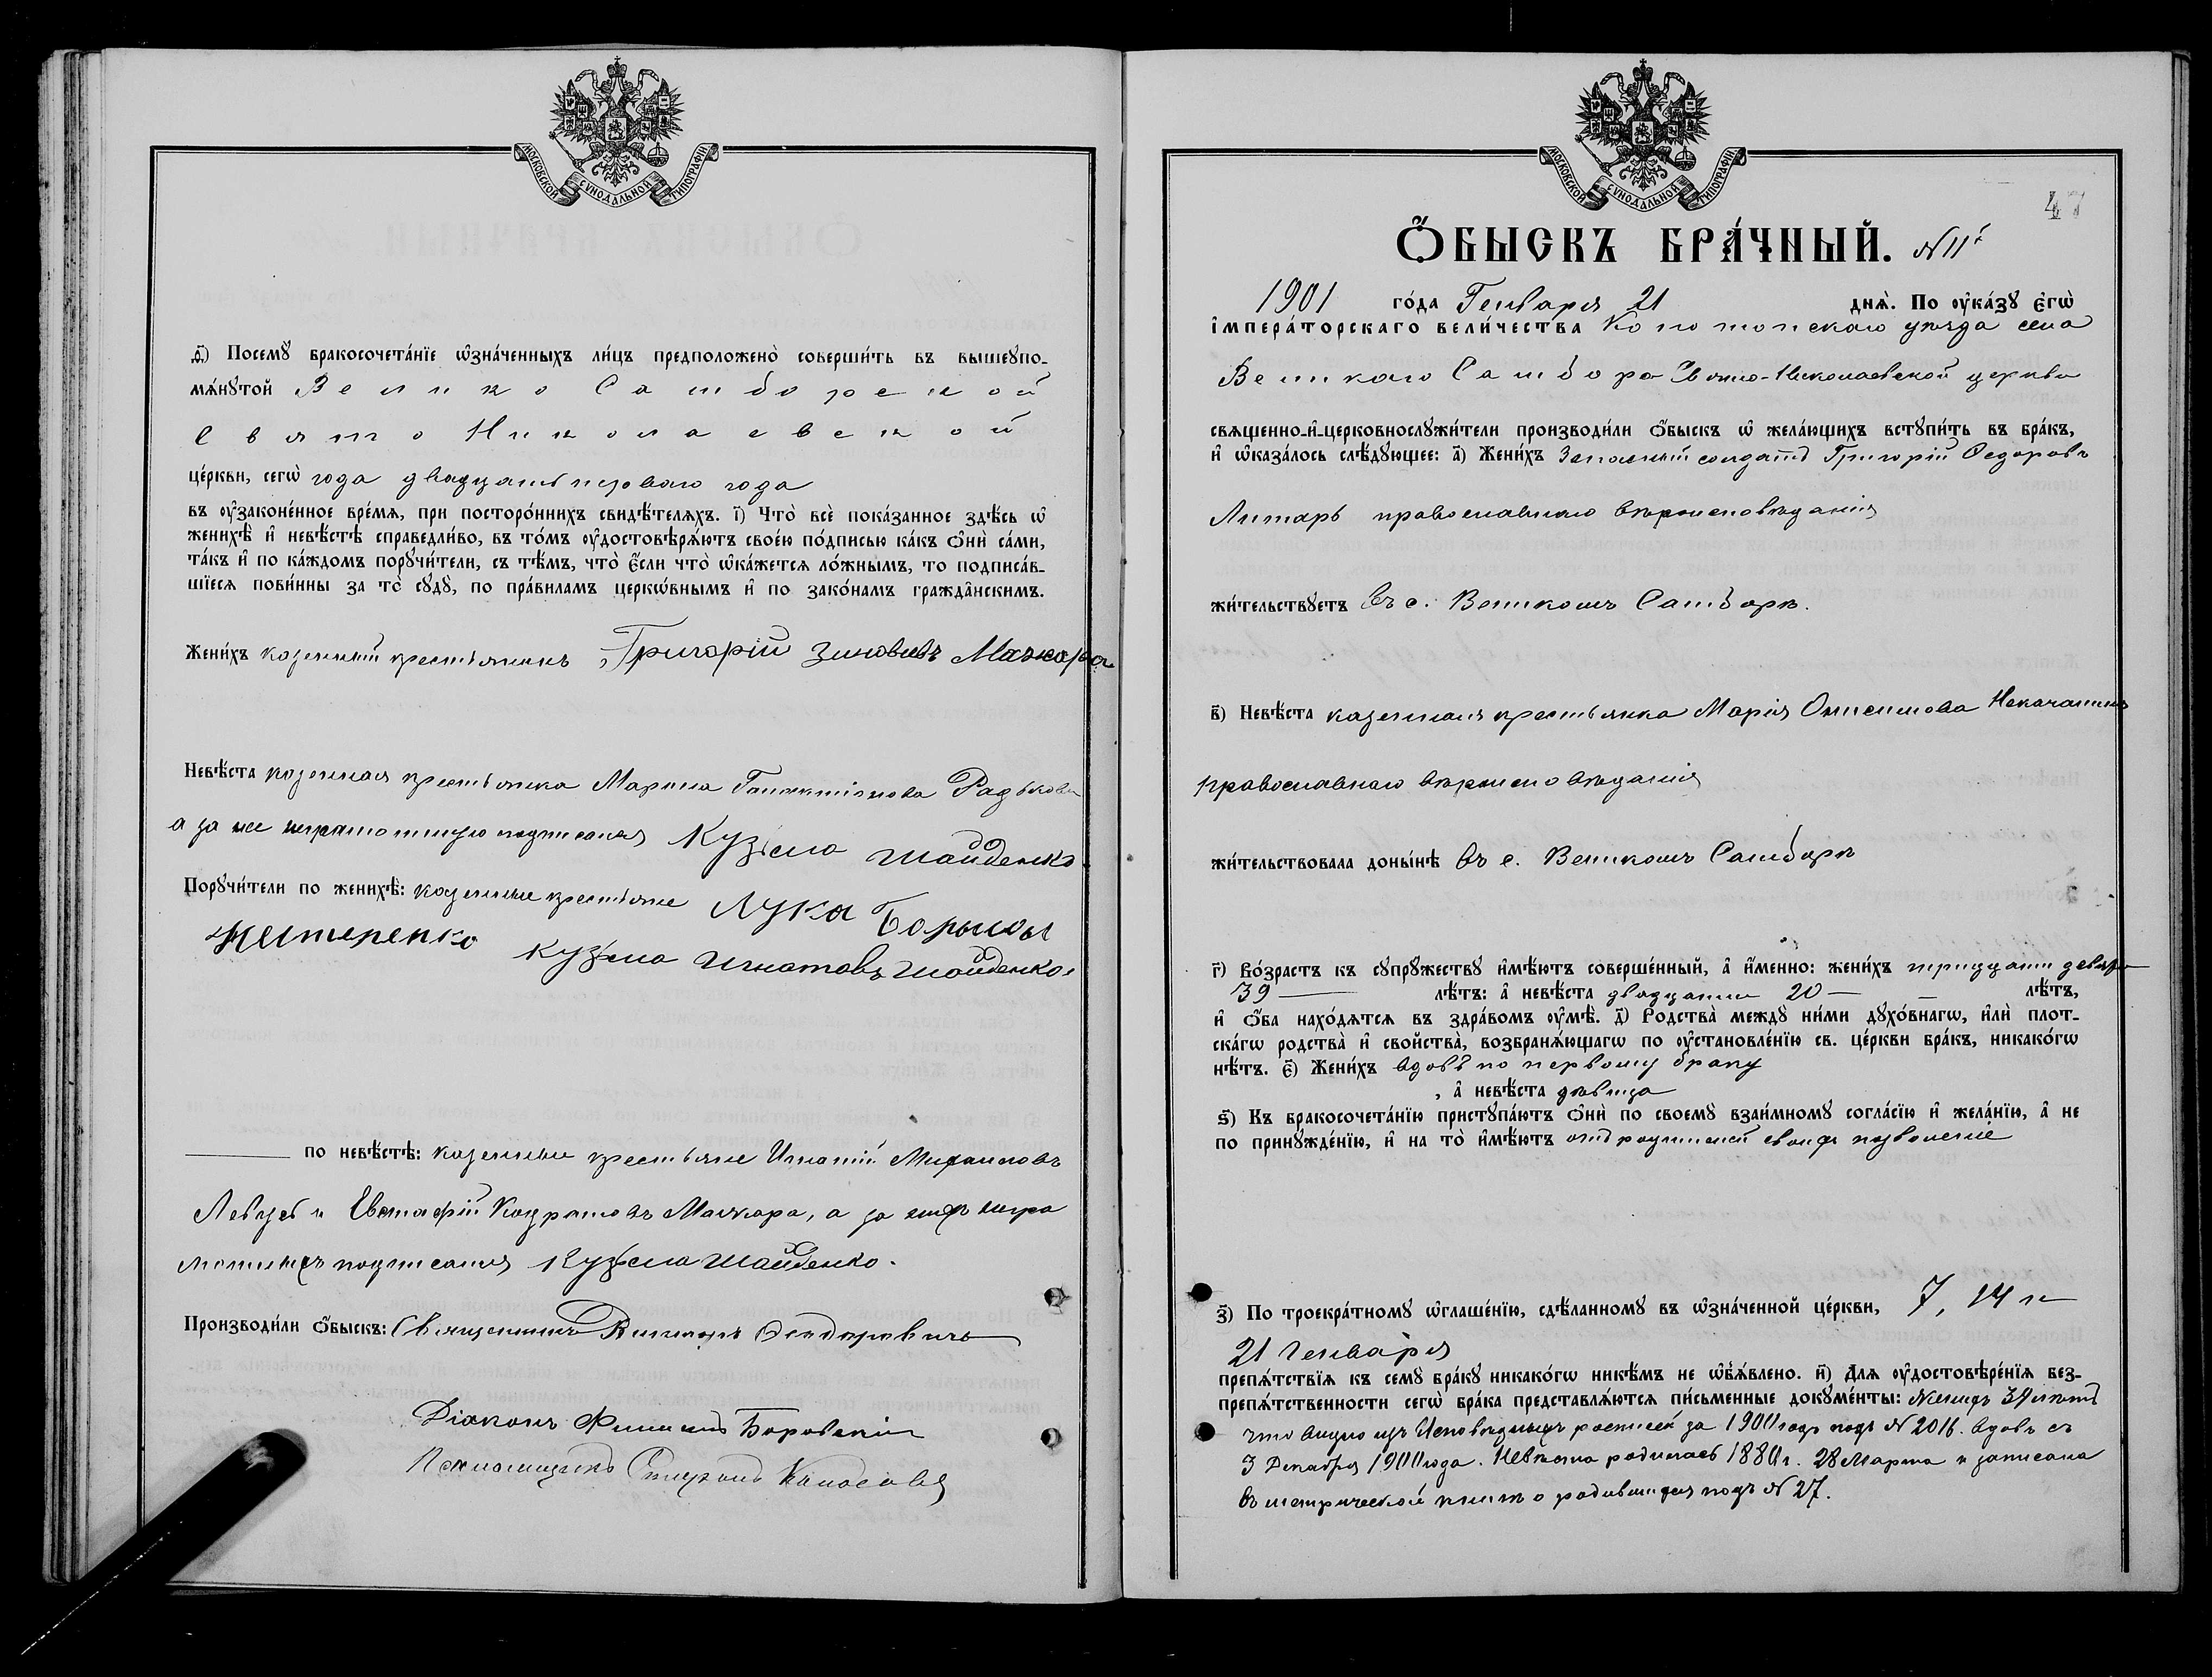 МОСКОВСКОЙ СѴНОДАЛЬНОЙ ТИПОГРАФІИ
ѳ҃) Посемꙋ̀ бракосочета́нїе ѡ҆зна́ченныхъ ли́цъ предположено̀ соверши́ть въ вышеꙋпо-
мѧ́нꙋтой Велико Самборской
Свято Николаевской
це́ркви, сегѡ̀ года двадцать перваго года
въ ᲂу҆законе́нное вре́мѧ, при посторо́ннихъ свидѣ́телѧхъ. і҃) Что̀ всѐ пока́занное здѣ́сь ѡ҆
женихѣ̀ и҆ невѣ́стѣ справедли́во, въ то́мъ ᲂу҆достовѣрѧ́ютъ свое́ю по́дписью ка́къ ѻ҆нѝ са́ми,
та́къ и҆ по ка́ждомъ порꙋчи́тели, съ тѣ́мъ, что̀ є҆́сли что̀ ѡ҆ка́жетсѧ ло́жнымъ, то подписа́в-
шїесѧ пови́нны за то̀ сꙋдꙋ̀, по пра́виламъ церкѡ́внымъ и҆ по зако́намъ гражда̑нскимъ.
Жени́хъ казенный крестьянинъ Григорій Зиновиевъ Мачкара
Невѣ́ста казенная крестьянка Марина Радькова
а за нее неграмотную подписался Кузьма Шайденко
Порꙋчи́тели по женихѣ̀: казенные крестьяне Лука Борисов
Нестеренко Кузьма Игнатовъ Шайденко
по невѣ́стѣ: казенные крестьяне Игнатій Михаиловъ
и Евстафій Кондратовъ Мачкара, а за нихъ негра
мотныхъ подписался Кузьма Шайденко.
Производи́ли ѻ҆́быскъ: Священникъ Ѳеодоровичъ
Діаконъ Филиппъ Боровскій
МОСКОВСКОЙ СѴНОДАЛЬНОЙ ТИПОГРАФІИ
47
Ѻ҆́БЫСКЪ БРА́ЧНЫЙ. №11й
1901 го́да Генваря 21 днѧ̀. По ᲂу҆ка́зꙋ є҆гѡ̀
і҆мпера́торскагѡ вели́чества Конотопскаго уѣзда села
Великаго Самбора Свято-Николаевской церкви
свѧщенно-и҆-церковнослꙋжи́тели производи́ли ѻ҆́быскъ ѡ҆ жела́ющихъ встꙋпи́ть въ бра́къ,
и҆ ѡ҆каза́лось слѣ́дꙋющее: а҃) Жени́хъ Запасный солдатъ Григорій Федоровъ
Литарь православнаго вѣроисповѣданія
жи́тельствꙋетъ въ с. Великомъ Самборѣ.
в҃) Невѣ́ста казенная крестьянка Марія Онисимова
православнаго вѣроисповѣданія
жи́тельствовала доны́нѣ въ с. Великомъ Самборѣ
г҃) Во́зрастъ къ сꙋпрꙋ́жествꙋ и҆мѣ́ютъ соверше́нный, а҆ и҆́менно: жени́хъ тридцати девяти
39 лѣ́тъ: а҆ невѣ́ста двадцати 20 лѣ́тъ,
и҆ ѻ҆́ба нахо́дѧтсѧ въ здра́вомъ ᲂу҆мѣ̀. д҃) Родства̀ междꙋ̀ ни́ми дꙋхо́внагѡ, и҆лѝ плот-
ска́гѡ родства̀ и҆ сво́йства̀, возбранѧ́ющагѡ по ᲂу҆становле́нїю св. це́ркви бра́къ, никако́гѡ
нѣ́тъ. є҃) Жени́хъ вдовъ по первому браку
, а҆ невѣ́ста дѣвица
ѕ҃) Къ бракосочета́нїю пристꙋпа́ютъ ѻ҆нѝ по своемꙋ̀ взаи́мномꙋ согла́сїю и҆ жела́нїю, а҆ не
по принꙋжде́нїю, и҆ на то̀ и҆мѣ́ютъ отъ родителей своихъ позволеніе
з҃) По троекра́тномꙋ ѡ҆глаше́нїю, сдѣ́ланномꙋ въ ѡ҆зна́ченной це́ркви, 7, 14 и
21 Генваря
препѧ́тствїѧ къ семꙋ̀ бра́кꙋ никако́гѡ никѣ́мъ не ѡ҆б̾ѧ́влено. и҃) Длѧ ᲂу҆достовѣре́нїѧ без-
препѧ́тственности сегѡ̀ бра́ка представлѧ́ютсѧ пи́сьменные докꙋме́нты: Жениху 39 лѣтъ
что видно изъ Исповѣдныхъ росписей за 1900 годъ подъ № 2016. вдовъ съ
3 Декабря 1900 года. Невѣста родилась 1880 г. 28 Марта и записана
въ метрической книгѣ о родившихся подъ № 27.